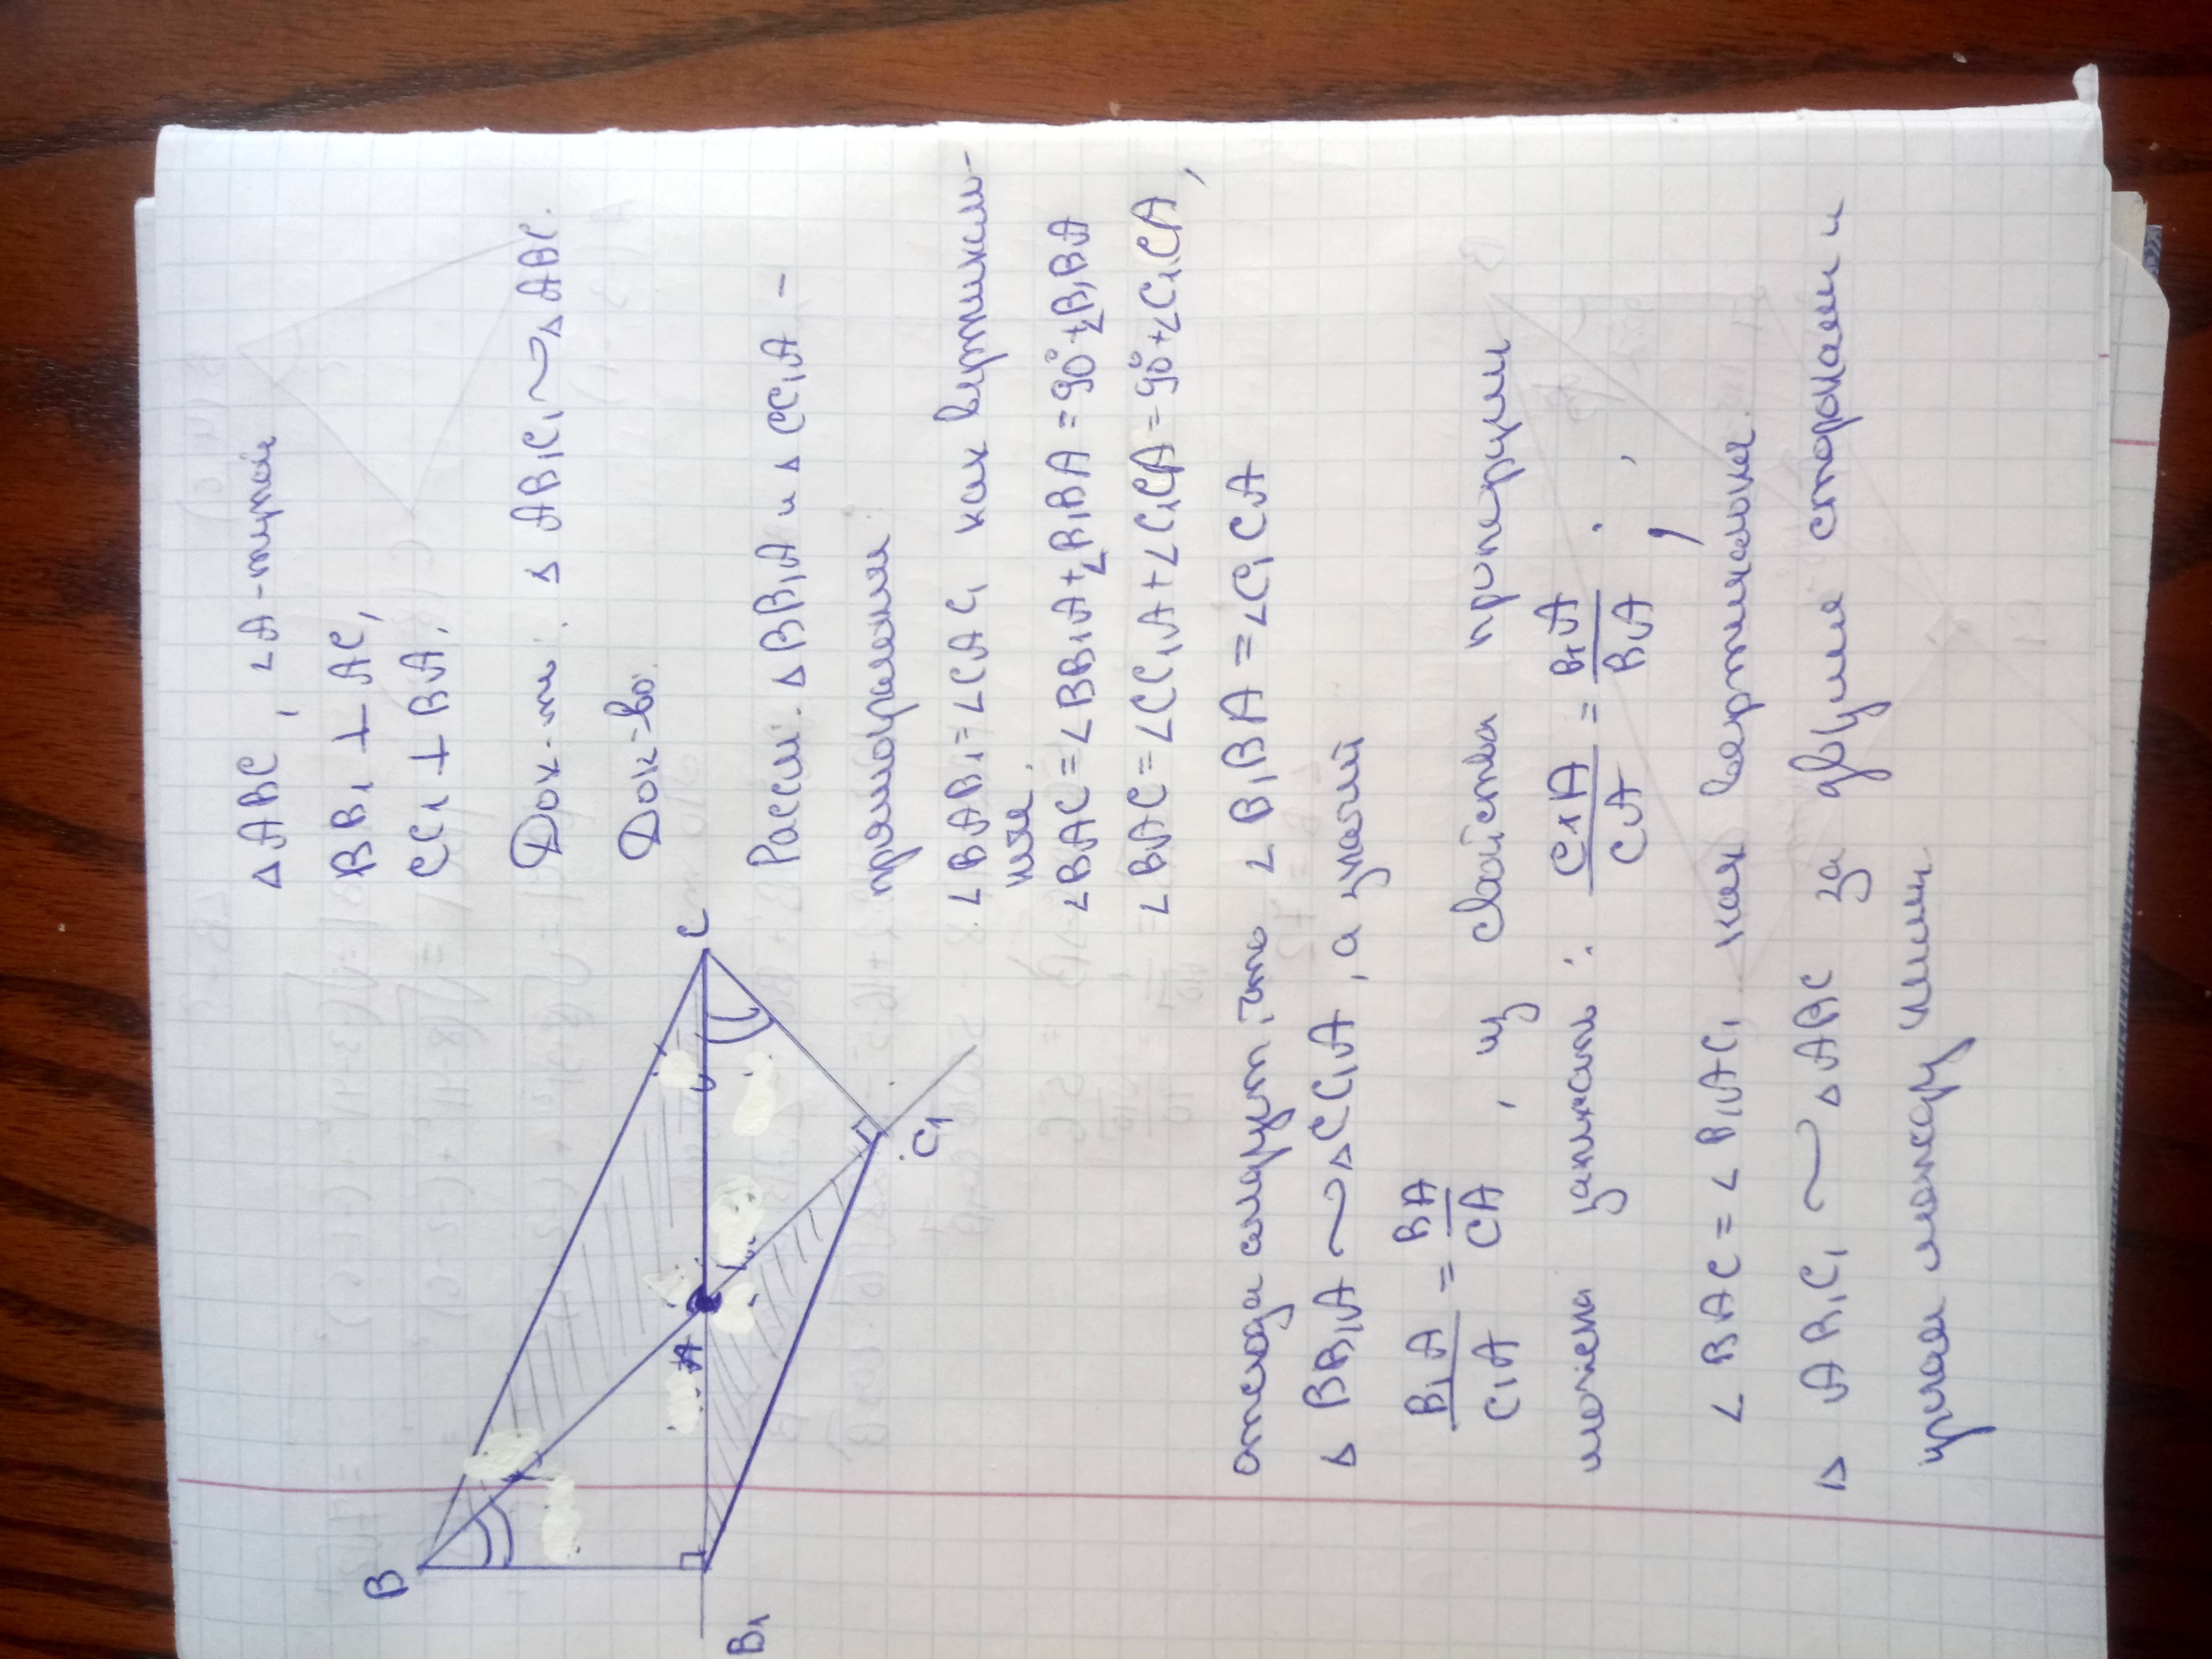 △ABC, ∠A-тупой
BB₁ ⊥ AC,
CC₁ ⊥ BA.
Док-ть: △ AB₁C₁ ~ △ ABC.
Док-во:
B
C
A
B₁
C₁
Рассм. △BB₁A и △ CC₁A -
прямоугольные
∠BAB₁ = ∠CAC₁ как вертикаль-
ные.
∠BAC = ∠BB₁A + ∠B₁BA = 90° + ∠B₁BA
∠BAC = ∠CC₁A + ∠C₁CA = 90° + ∠C₁CA,
отсюда следует, что ∠ B₁BA = ∠C₁CA
△ BB₁A ~ △CC₁A, а значит
B₁A/C₁A = BA/CA, из свойства пропорции
можем записать: C₁A/CA = B₁A/BA,
∠ BAC = ∠ B₁AC₁ как вертикальные.
△ AB₁C₁ ~ △ABC за двумя сторонами и
углом между ними